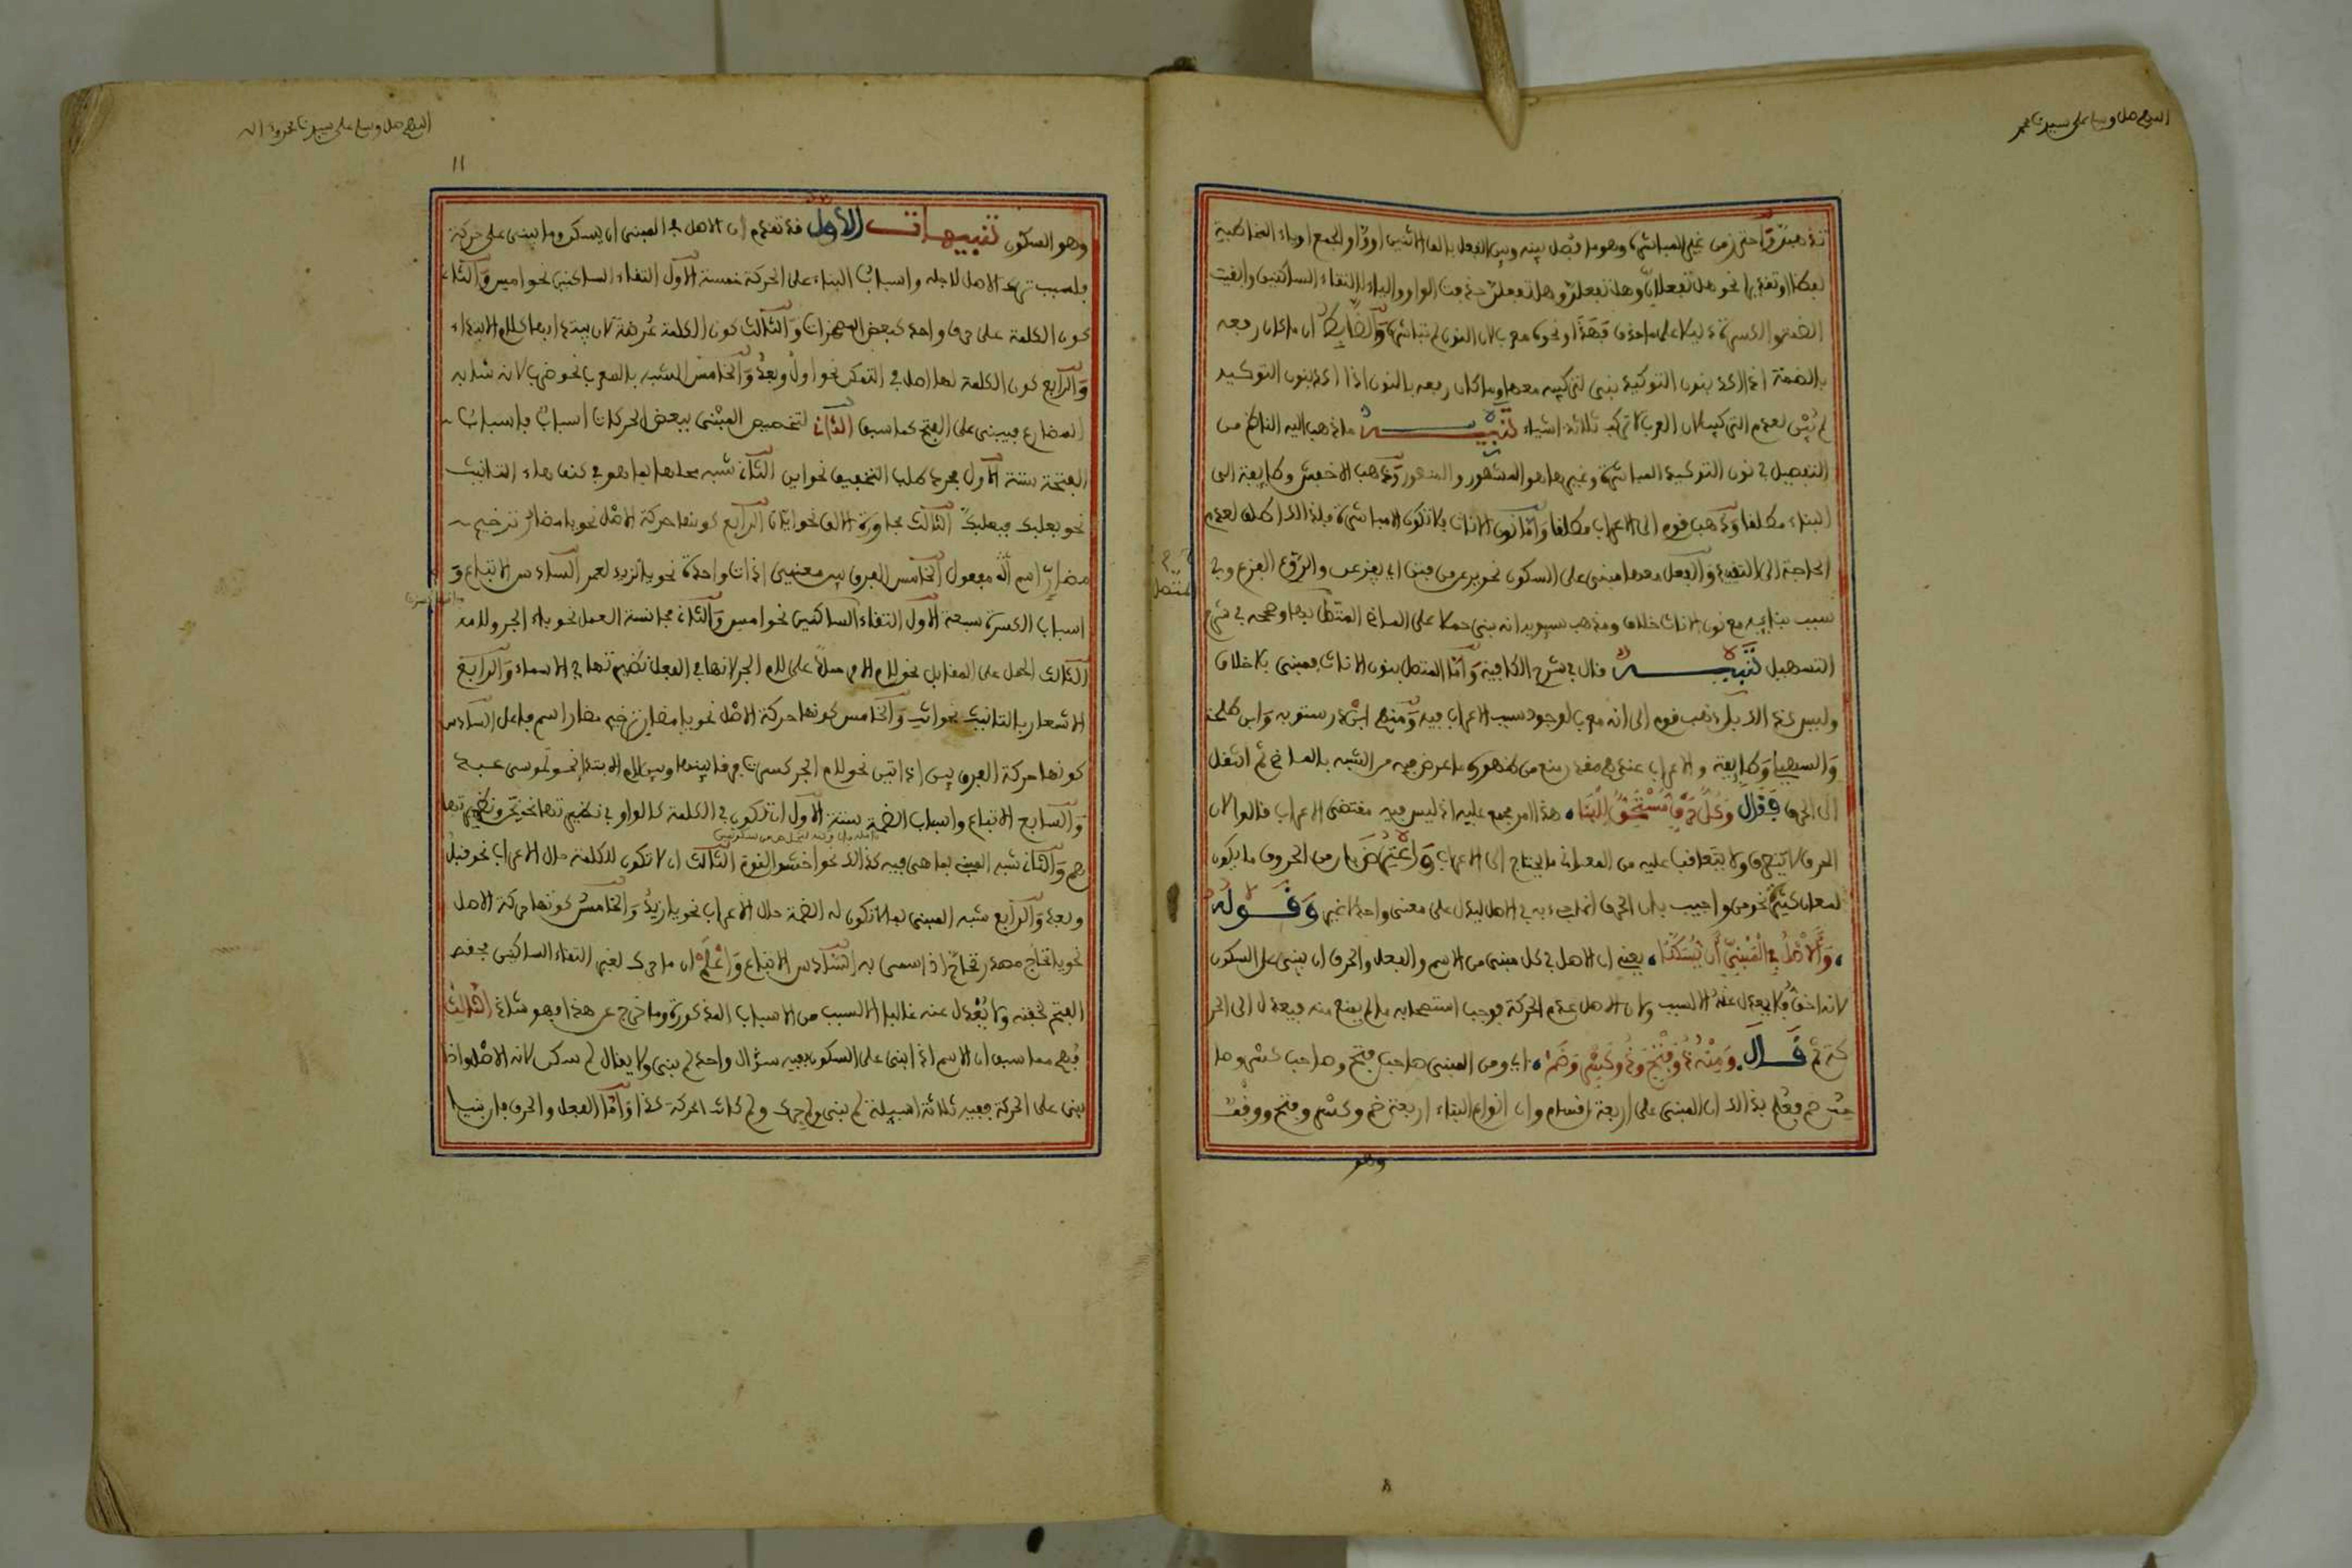 اللهم صل وسلم على سيدنا محمد
تذهبن واحترز من غير المباشرة وهو ما فصل بينه وبين الفعل بالف الاثنين او واو الجمع او ياء المخاطبة
لفظا او تقديرا نحو هل تفعلان وهل تفعلن وهل تفعلن حذفت الواو والياء لالتقاء الساكنين وابقيت
الضمة والكسرة دليلا على ما حذف فهذا ونحوه معرب لان النون لم تباشره والضابط ان ما كان رفعه
بالضمة اذا اكد بنون التوكيد بنى لتركيبه معها وما كان رفعه بالنون اذا اكد بنون التوكيد
لم يبن لعدم التركيب لان العرب لا تركب ثلاثة اشياء تنبيه ما ذهب اليه الناظم من
التفصيل في نون التوكيد المباشرة وغيرها هو المشهور والمنصور وذهب الاخفش وطايفة الى
البناء مطلقا وذهب قوم الى الاعراب مطلقا واما نون الاناث فلا تكون الا مباشرة فلذلك اطلق لعدم
الحاجة الى التقييد والفعل معها مبنى على السكون نحو يرعن من فتن اي يفزعن والروع الفزع وفي
سبب بنايه مع نون الاناث خلاف ومذهب سيبويه انه بنى حملا على الماضى المتصل بها وصححه في شرح
التسهيل تنبيه قال في شرح الكافية واما المتصل بنون الاناث فمبنى بلا خلاف
وليس كذلك بل ذهب قوم الى انه معرب لوجود سبب الاعراب فيه ومنهم ابن درستويه وابن طلحة
والسهيلي وطايفة والاعراب عندهم مقدر منع من ظهوره ما عرض فيه من الشبه بالماضي ثم انتقل
الى الحرف فقال وكل حرف مستحق للبنا هذا امر مجمع عليه اذ ليس فيه مقتضى الاعراب قالوا لان
الحرف لا يتصرف ولا يتعاقب عليه من المعاني ما يحتاج الى الاعراب واعترض بان من الحروف ما يكون
لمعان كثيرة نحو من واجيب بان الحرف انما جيء به في الاصل ليدل على معنى واحد لا غير وقوله
والاصل في المبني ان يسكنا يعني ان الاصل في كل مبنى من الاسم والفعل والحرف ان يبنى على السكون
لانه اخف فلا يعدل عنه الا لسبب ولان الاصل عدم الحركة فوجب استصحابه ما لم يمنع منه فيعدل الى الحر
كة ثم قال ومنه ذو فتح وذو كسر وضم اي ومن المبنى صاحب فتح وصاحب كسر وصا
حب ضم فعلم بذلك ان المبنى على اربعة اقسام وان انواع البناء اربعة ضم وكسر وفتح ووقف
وهو
اللهم صل وسلم على سيدنا محمد وءاله
١١
وهو السكون تنبيهات الاول قد تقدم ان الاصل في المبنى ان يسكن وما بنى على حركة
فلسبب ترك الاصل لاجله واسباب البناء على الحركة خمسة الاول التقاء الساكنين نحو امس والثاني
كون الكلمة على حرف واحد كبعض المضمرات والثالث كون الكلمة عرضة لان يبتدا بها كلام الابتداء
والرابع كون الكلمة لها اصل في التمكن نحو اول وبعد والخامس الشبه بالمعرب نحو ضرب لانه شابه
المضارع فبنى على الفتح كما سبق الثاني لتخصيص المبنى ببعض الحركات اسباب فاسباب
الفتحة ستة الاول مجرد طلب التخفيف نحو اين الثاني شبه محلها بما هو في كنف هاء التانيث
نحو بعلبك فبعلبك الثالث مجاورة الالف نحو ايان الرابع كونها حركة الاصل نحو يا مضار ترخيم
مضارر اسم مفعول الخامس الفرق بين معنيين اداة واحدة نحو يا لزيد لعمر السادس الاتباع و
اسباب الكسرة سبعة الاول التقاء الساكنين نحو امس والثاني مجانسة العمل نحو باء الجر ولامه
الثالث الحمل على المقابل نحو لام الامر حملا على لام الجر لانها في الفعل نظيرتها في الاسماء والرابع
الاشعار بالتانيث نحو انت والخامس كونها حركة الاصل نحو يا مضار ترخيم مضارر اسم فاعل السادس
كونها حركة الفرق بين اداتين نحو لام الجر كسرت فرقا بينها وبين لام الابتداء نحو لموسى عبد
والسابع الاتباع واسباب الضمة ستة الاول ان تكون في الكلمة كالواو في نظيرتها نحو نحن ونظيرتها
هم والثاني شبه المبنى بما هي فيه كذلك نحو اخشوا القوم الثالث ان لا تكون للكلمة حال الاعراب نحو قبل
وبعد والرابع شبه المبنى بما لا تكون له الضمة حال الاعراب نحو يا زيد والخامس كونها حركة الاصل
نحو يا تحاج مصدر تحاج اذا سمى به السادس الاتباع واعلم ان ما حرك لغير التقاء الساكنين فحقه
الفتح لخفته ولا يعدل عنه غالبا الا لسبب من الاسباب المذكورة وما خرج عن هذا فهو شاذ الثالث
فهم مما سبق ان الاسم اذا بنى على السكون ففيه سؤال واحد لم بنى ولا يقال لم سكن لانه الاصل واذا
بنى على الحركة ففيه ثلاثة اسيلة لم بنى ولم حرك ولم كانت الحركة كذا واما الفعل والحرف فان بنيا